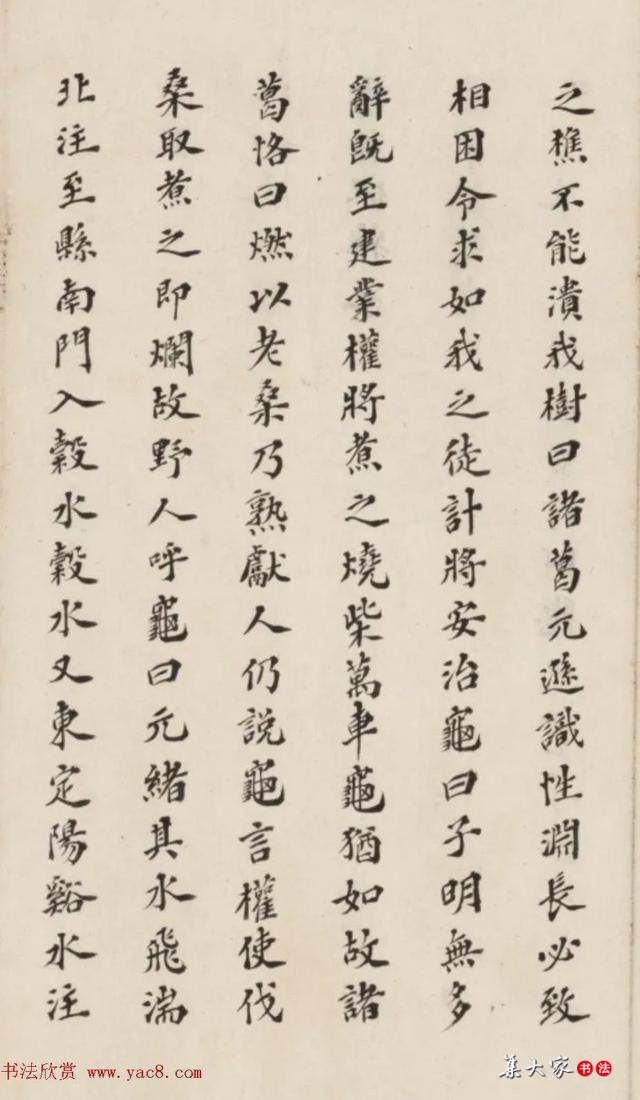 之樵不能潰我樹曰諸葛元遜識性淵長必致
相困令求如我之徒計將安治龜曰子明無多
辭既至建業權將煮之燒柴萬車龜猶如故諸
葛恪曰燃以老桒乃熟獻人仍說龜言權使伐
桒取煮之即爛故野人呼龜曰元緒其水飛湍
北注至縣南門入穀水穀水又東定陽谿水注
书法欣赏 www.yac8.com
集大家 书法